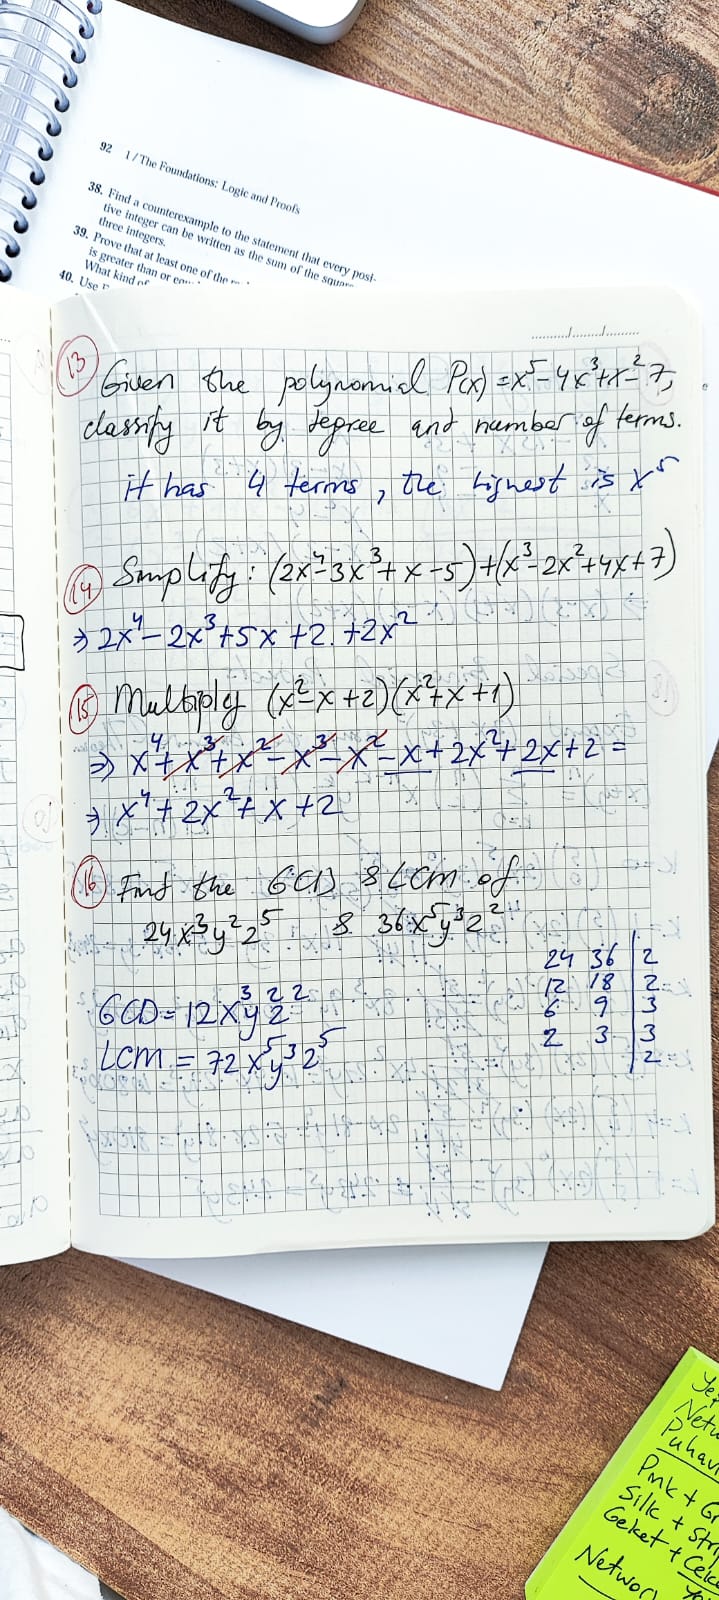 92 1 / The Foundations: Logic and Proofs
38. Find a counterexample to the statement that every posi-
tive integer can be written as the sum of the squares
three integers.
39. Prove that at least one of the
is greater than or
What kind of
40. Use
......../......../........
13 Given the polynomial P(x) = x⁵ - 4x³ + x² - 7,
classify it by degree and number of terms.
it has 4 terms, the highest is x⁵
14 Simplify: (2x⁴ - 3x³ + x - 5) + (x³ - 2x² + 4x + 7)
⇒ 2x⁴ - 2x³ + 5x + 2. + 2x²
15 Multiply (x² - x + 2)(x² + x + 1)
⇒ x⁴ + x³ + x² - x³ - x² - x + 2x² + 2x + 2 =
⇒ x⁴ + 2x² + x + 2
16 Find the GCD & LCM of
24x³y²z⁵ & 36x⁵y³z²
24 36 | 2
12 18 | 2
6 9 | 3
2 3 | 3
2
GCD = 12x³y²z²
LCM = 72x⁵y³z⁵
Pink +
Silk +
Geket +
Network